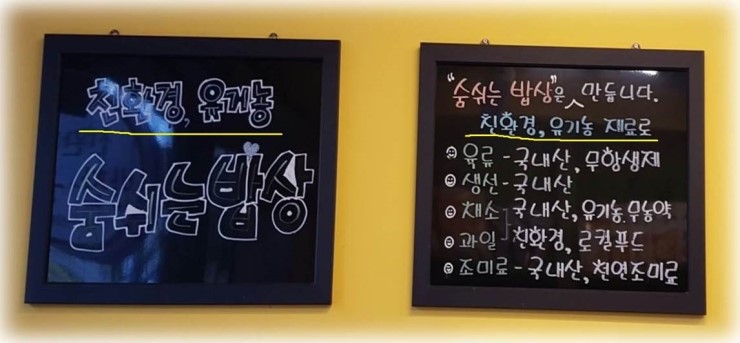 친환경, 유기농
숨쉬는밥상
"숨쉬는 밥상"은 만듭니다.
친환경, 유기농 재료로
육류 - 국내산, 무항생제
생선 - 국내산
채소 국내산, 유기농, 무농약
과일 친환경, 로컬푸드
조미료 - 국내산, 천연조미료